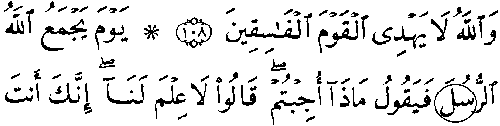 وَٱللَّهُ لَا يَهْدِى ٱلْقَوْمَ ٱلْفَٰسِقِينَ ١٠٨ * يَوْمَ يَجْمَعُ ٱللَّهُ
ٱلرُّسُلَ فَيَقُولُ مَاذَآ أُجِبْتُمْ ۖ قَالُوا۟ لَا عِلْمَ لَنَآ ۖ إِنَّكَ أَنتَ